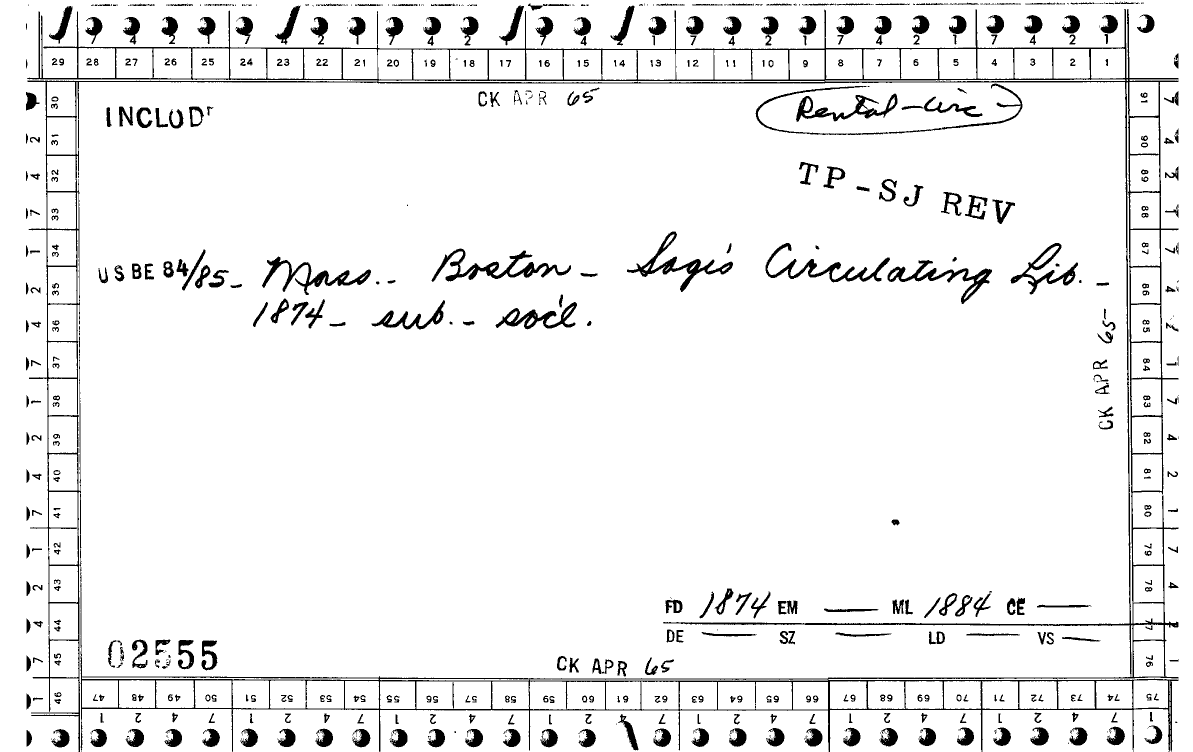 7 4 2 1 7 4 2 1 7 4 2 1 7 4 2 1 7 4 2 1 7 4 2 1 7 4 2 1
29 28 27 26 25 24 23 22 21 20 19 18 17 16 15 14 13 12 11 10 9 8 7 6 5 4 3 2 1
CK APR 65
Rental-circ-
INCLOD
TP-SJ REV
USBE 84/85- Mass.- Boston - Sogi's Circulating Lib. -
1874- sub.- soc'l.
CK APR 65-
FD 1874 EM — ML 1884 CE —
DE — SZ — LD — VS —
02555
CK APR 65
30 31 32 33 34 35 36 37 38 39 40 41 42 43 44 45 46
2 4 7 1 2 4 7 1 2 4 7 1 2 4 7 1
91 90 89 88 87 86 85 84 83 82 81 80 79 78 77 76
47 48 49 50 51 52 53 54 55 56 57 58 59 60 61 62 63 64 65 66 67 68 69 70 71 72 73 74 75
1 2 4 7 1 2 4 7 1 2 4 7 1 2 4 7 1 2 4 7 1 2 4 7 1 2 4 7 1